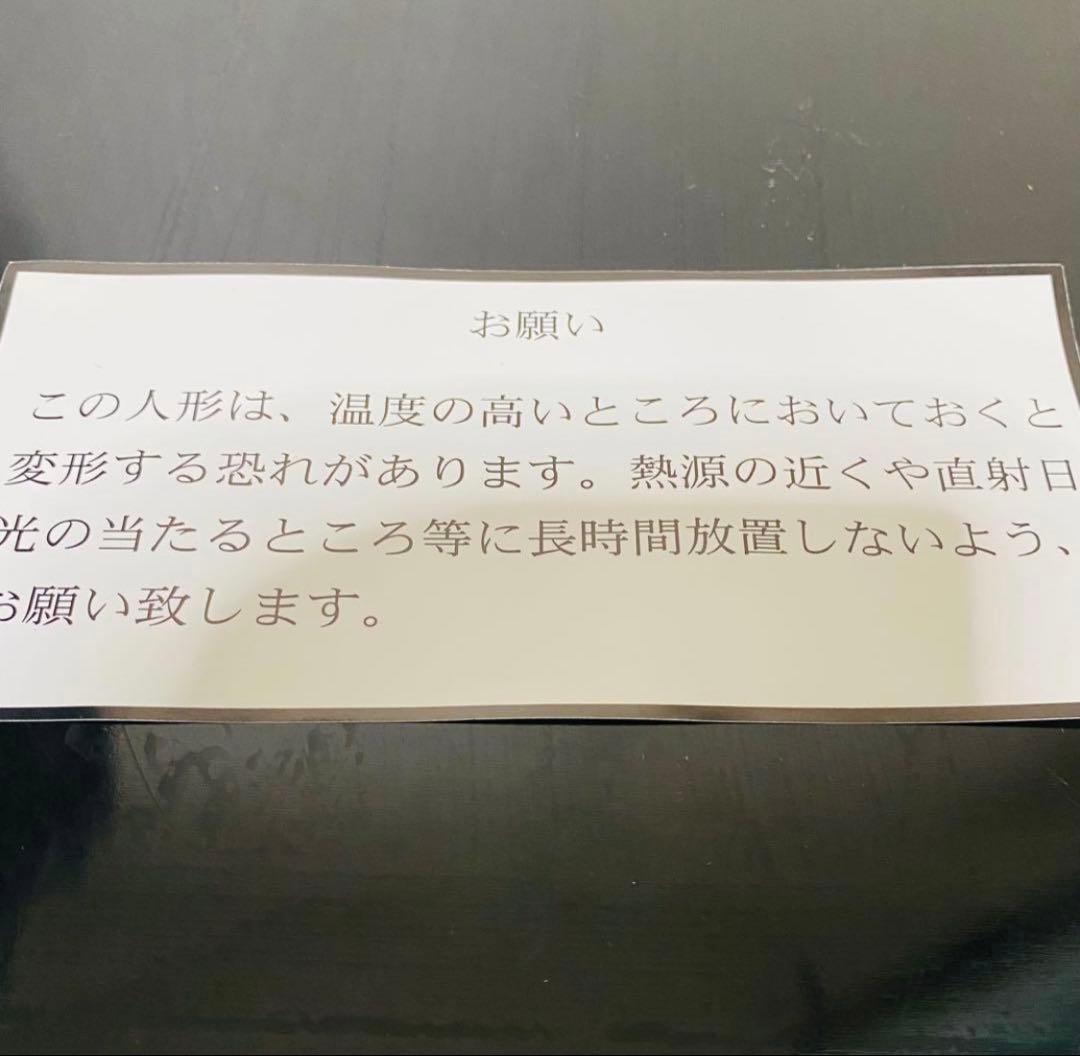 お願い
この人形は、温度の高いところにおいておくと
変形する恐れがあります。熱源の近くや直射日
光の当たるところ等に長時間放置しないよう、
お願い致します。